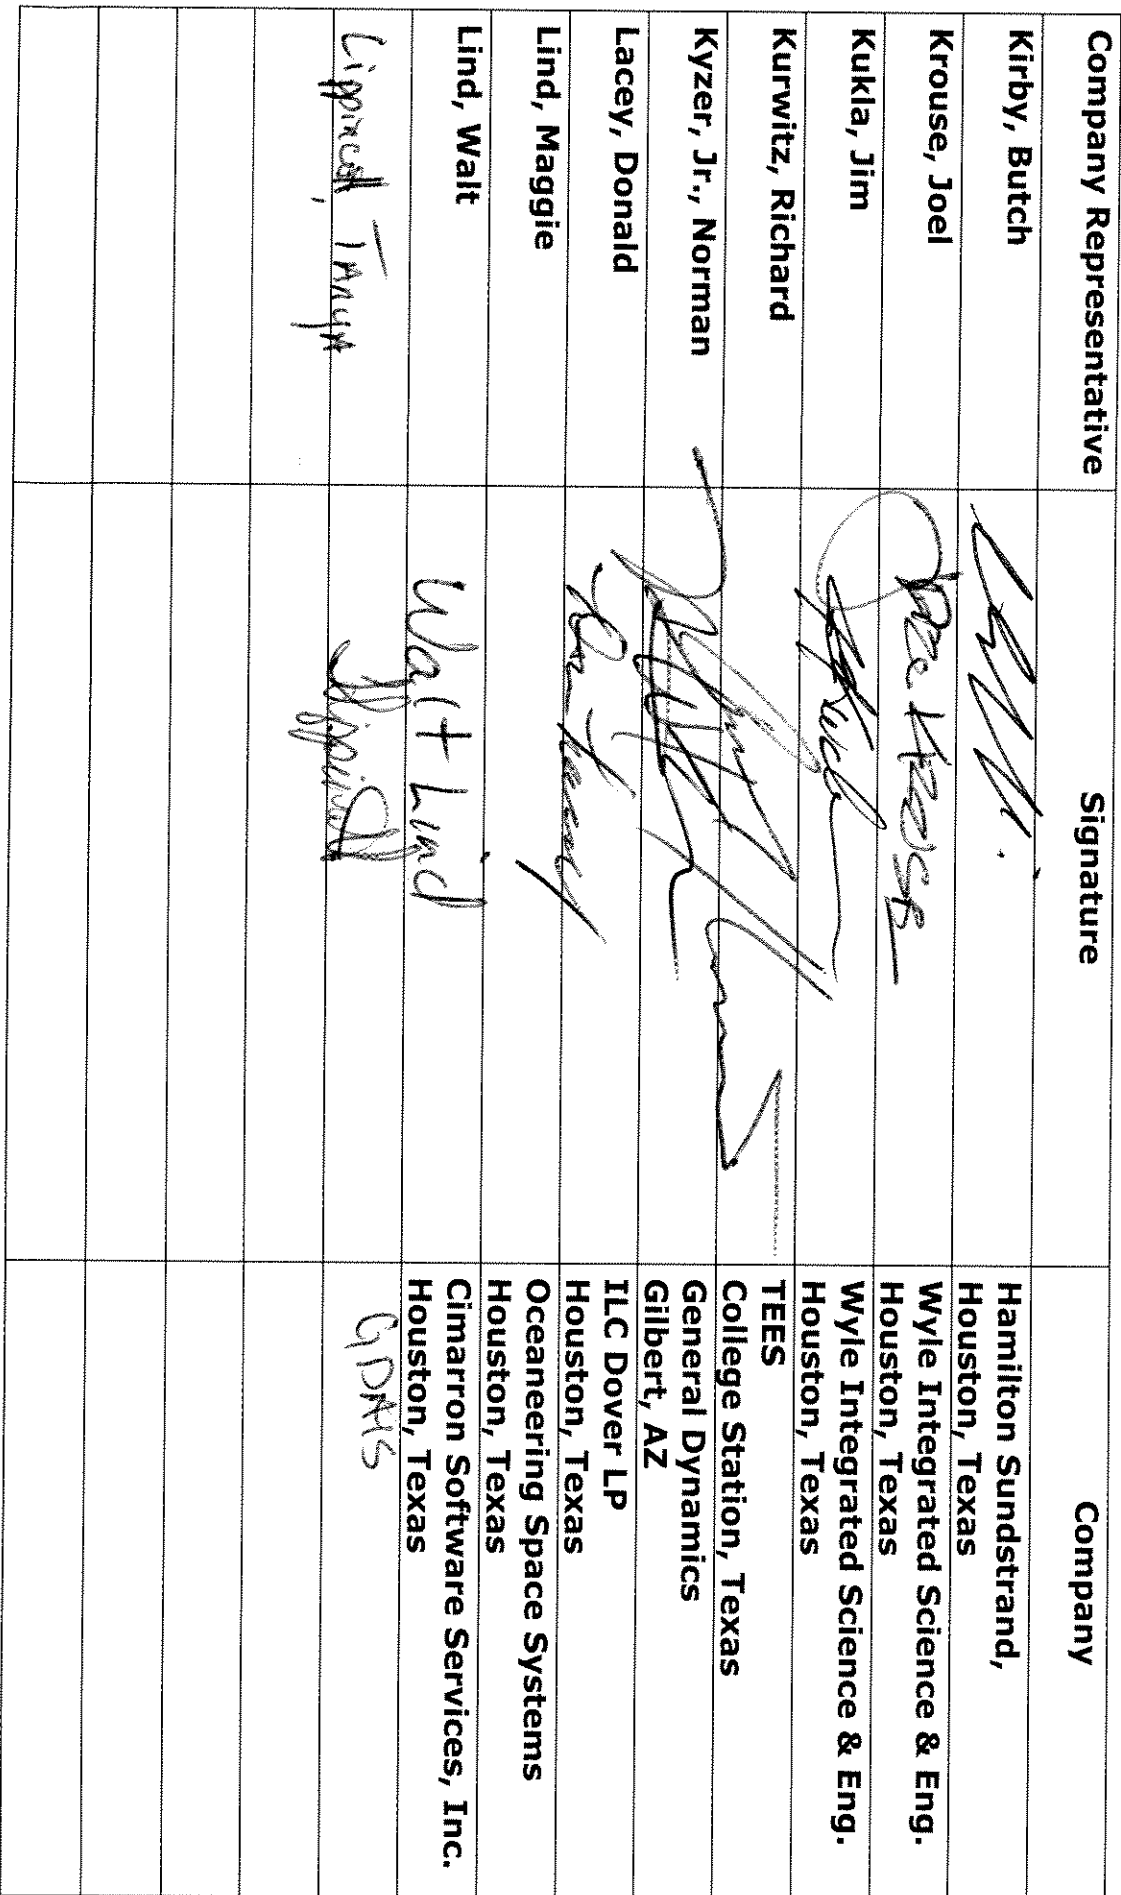 Company Representative Signature Company
Kirby, Butch Hamilton Sundstrand,
Houston, Texas
Krouse, Joel Wyle Integrated Science & Eng.
Houston, Texas
Kukla, Jim Wyle Integrated Science & Eng.
Houston, Texas
Kurwitz, Richard TEES
College Station, Texas
Kyzer, Jr., Norman General Dynamics
Gilbert, AZ
Lacey, Donald ILC Dover LP
Houston, Texas
Lind, Maggie Oceaneering Space Systems
Houston, Texas
Lind, Walt Walt Lind Cimarron Software Services, Inc.
Houston, Texas
Lippincott, Tanya GDAIS